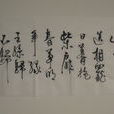 送相罷
日暮掩
柴扉
春草明
年綠
王孫歸
不歸